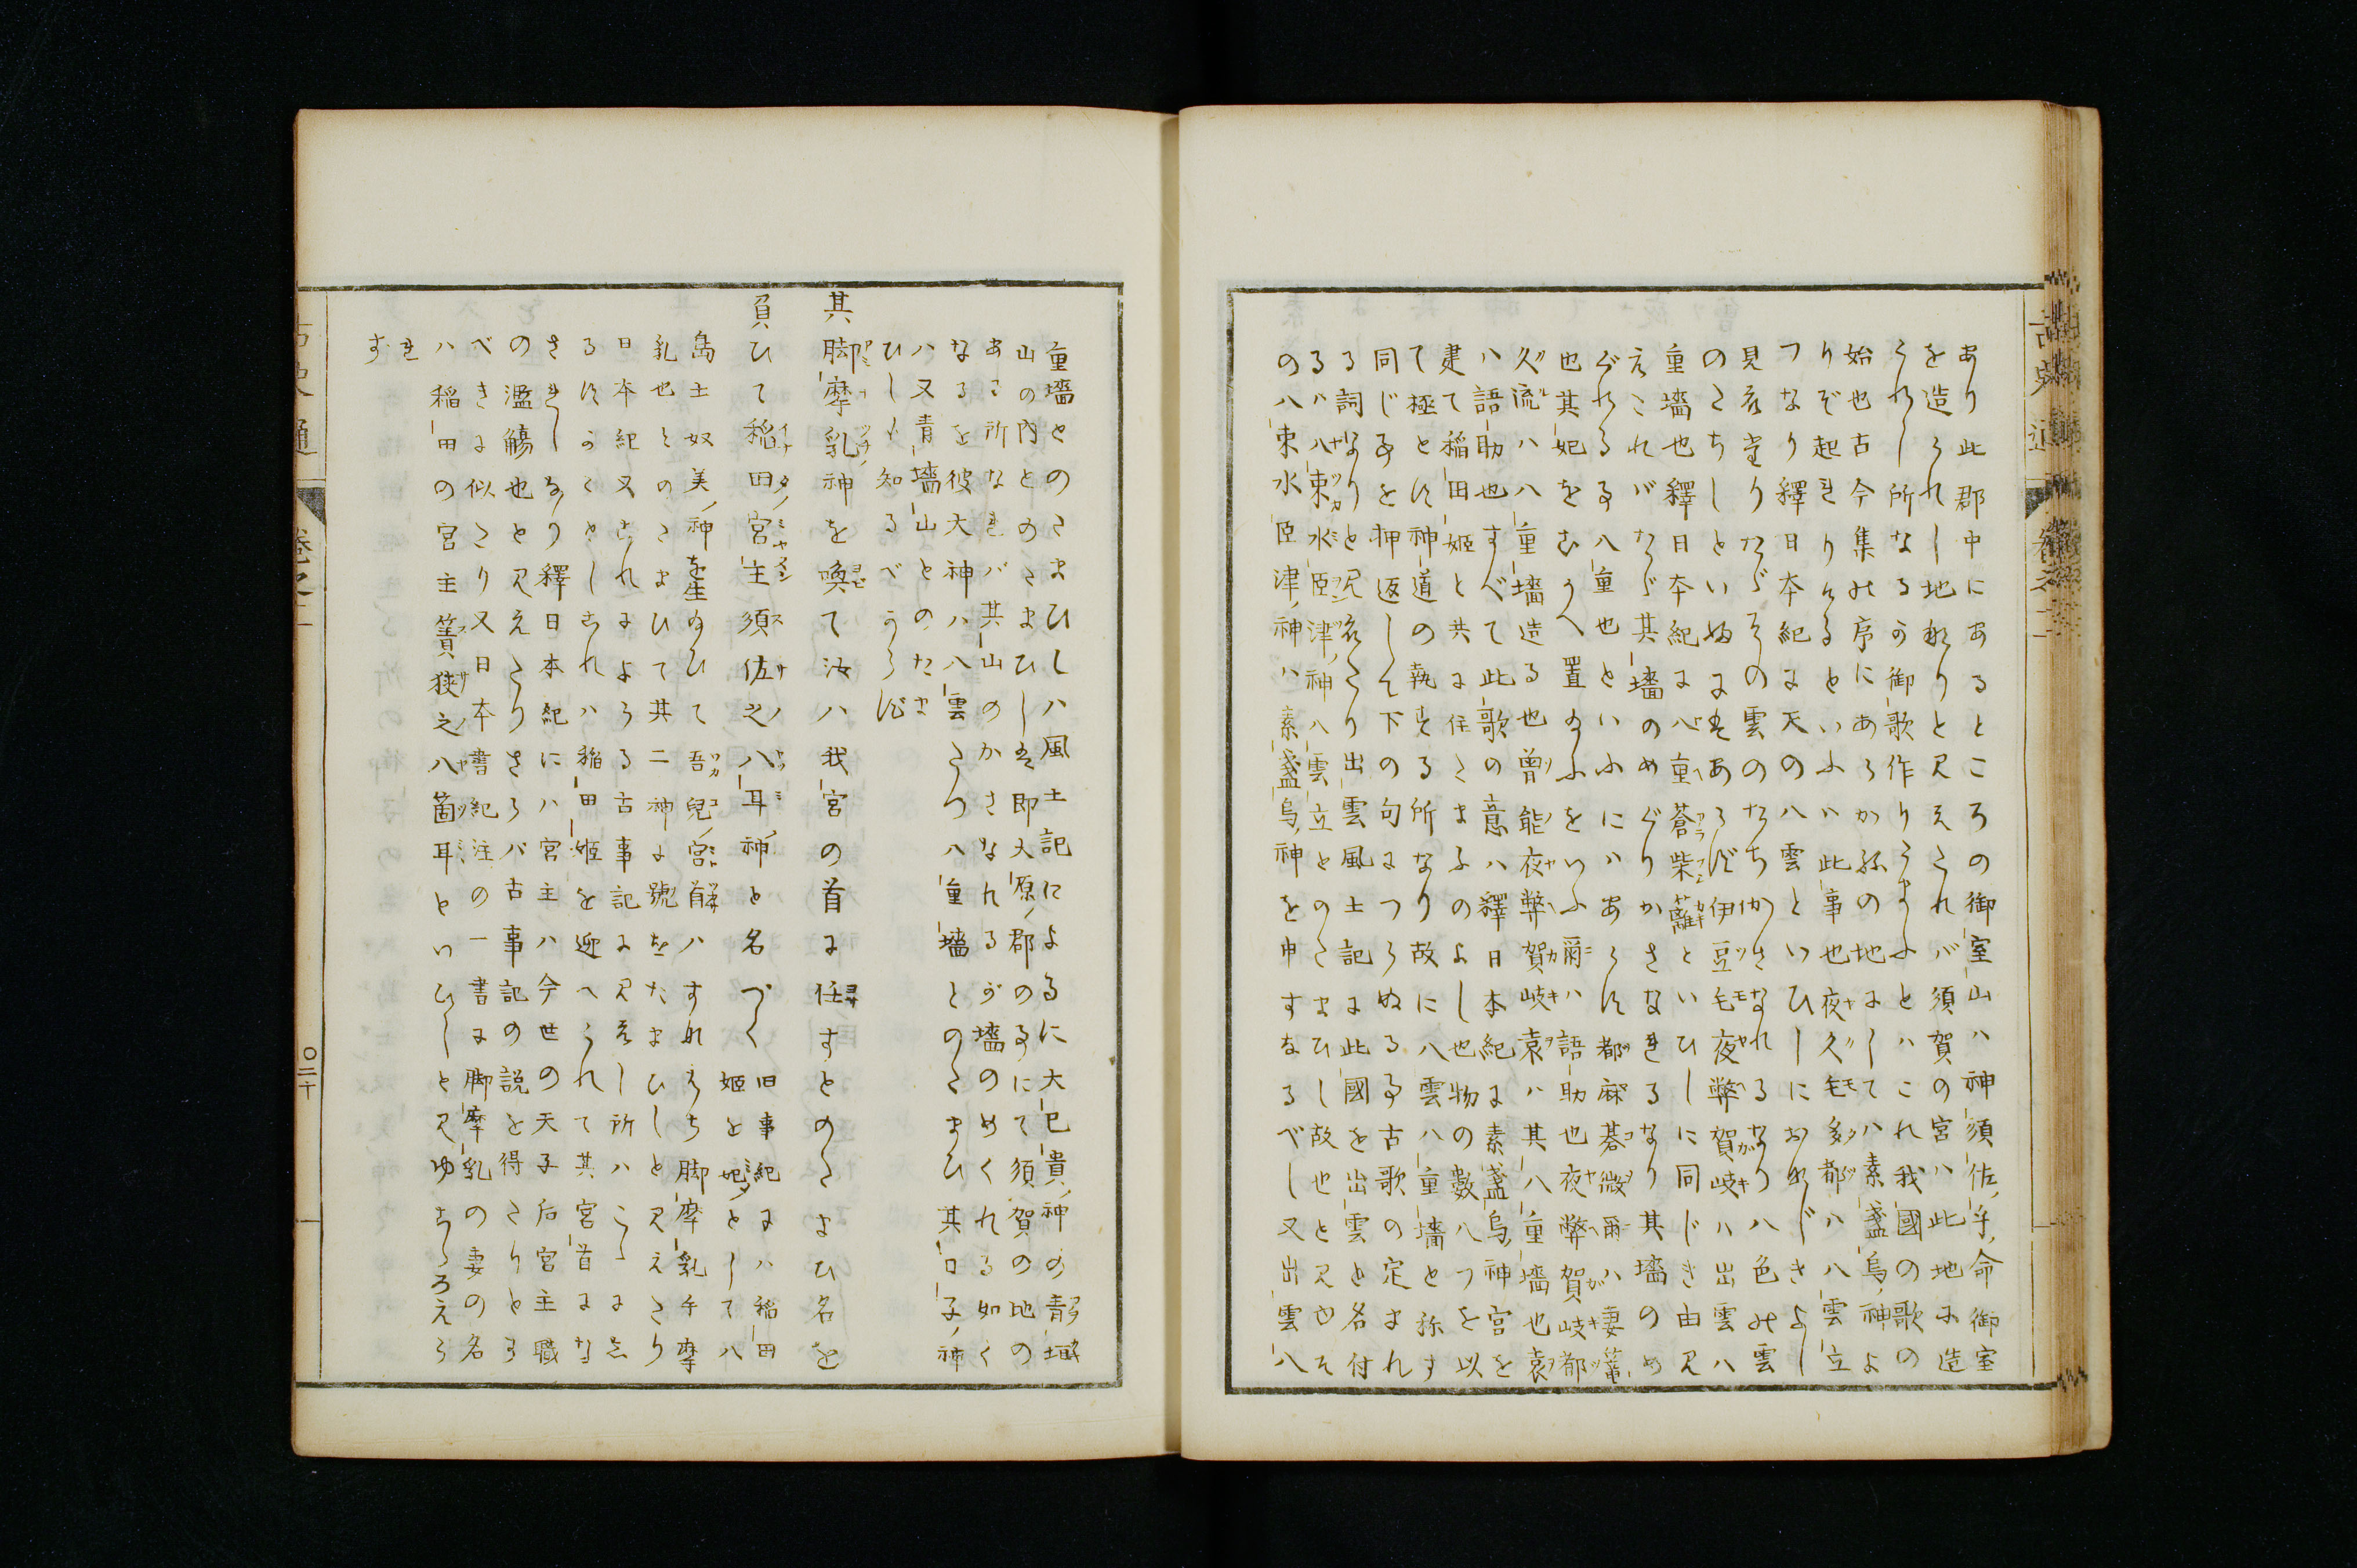 あり此郡中にあるところの御室山ハ神須佐乎命御室
を造られし地なりと見えたれバ須賀の宮ハ此地に造
られし所なるの御歌作りたまふとハこれ我國の歌の
始也古今集の序にあらかねの地にしてハ素盞烏神よ
りぞ起きりけるといふハ此事也夜久毛多都ハ八雲立
つなり釋日本紀に天の八雲といひしにおなじきよし
見えたりたゞその雲のたちかさなれるなり八色の雲
のたちしといぬにハあらず伊豆毛夜弊賀岐ハ出雲八
重墻也釋日本紀に八重蒼柴籬といひしに同じき由見
えこれバたゞ其墻のめぐりかさなれるなり其墻のめ
ぐれる事八重也といふにハあらず都麻碁微爾ハ妻篭
也其妃をむかへ置たまふをいふ爾ハ語助也夜弊賀岐都
久流ハ八重墻造る也曽能夜弊賀岐袁ハ其八重墻也袁
ハ語助也すべて此歌の意ハ釋日本紀に素盞烏神宮を
建て稲田姫と共に住たまふのよし也物の數八つを以
て極とす神道の執する所なり故に八雲八重墻と称す
同じ事を押返して下の句につらぬる事古歌の定まれ
る詞なりと見えたり出雲風土記に此國を出雲と名付
るハ八束水臣津神八雲立とのたまひし故也と見ゆそ
の八束水臣津神ハ素盞烏神を申すなるべし又出雲八
重墻とのたまひしハ風土記によるに大己貴神の青墻
山の内とのたまひしも即大原郡の事にて須賀の地の
あたる所なれバ其山のかさなれるが墻のめくれる如く
なるを彼大神ハ八雲たつ八重墻とのたまひ其口子神
ハ又青墻山とのたま
ひしも知るべからず
其脚摩乳神を喚て汝ハ我宮の首に任すとのたまひ名を
負ひて稲田宮主須佐之八耳神と名づく旧事紀にハ稲田
姫を妃として八
島士奴美神を生たまひて吾兒宮首ハすなわち脚摩乳手摩
乳也とのたまひて其二神に號をたまひしと見えたり
日本紀又これによる古事記に見えし所ハこゝに
るすかくとしこれハ稲田姫を迎へられて其宮首にな
されしなり釋日本紀にハ宮主ハ今世の天子后宮主職
の濫觴也と見えたりさらバ古事記の説を得たりとす
べきに似たり又日本書紀注の一書に脚摩乳の妻の名
ハ稲田の宮主簀狹之八箇耳といひしと見ゆ